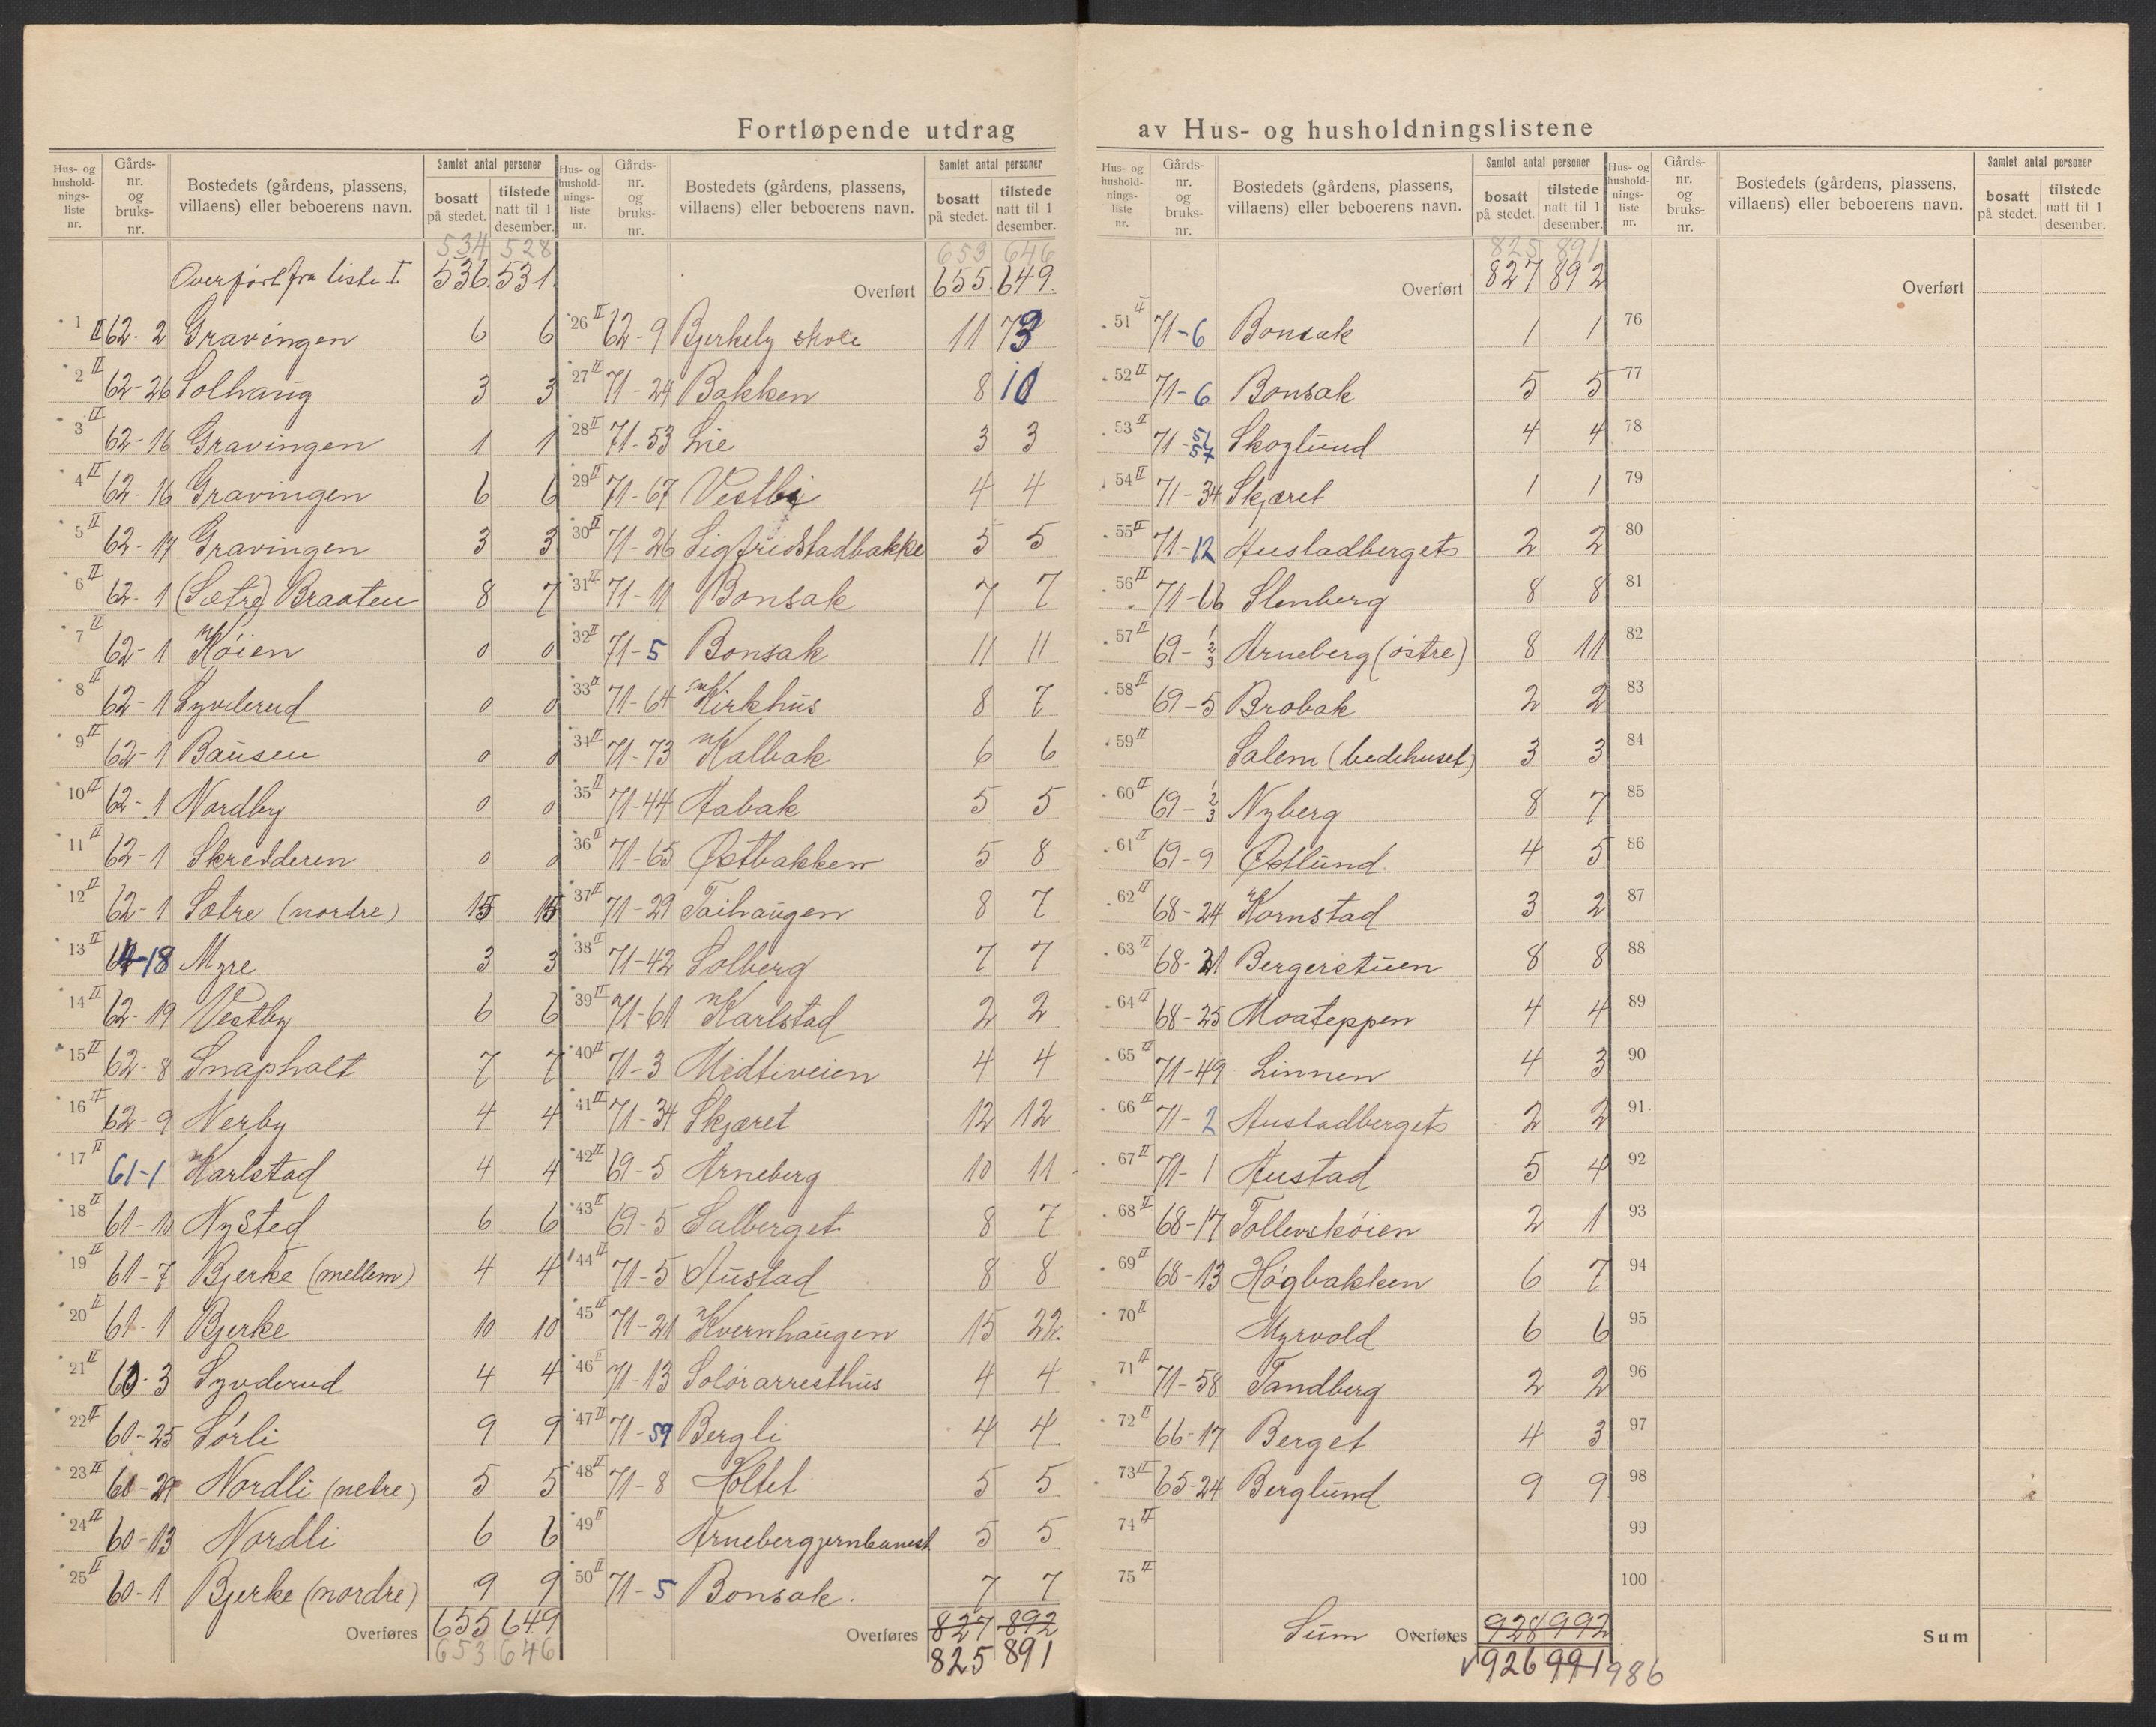 Fortløpende utdrag av Hus- og husholdningslistene
Hus- og hushold-nings-liste nr. | Gårds-nr. og bruks-nr. | Bostedets (gårdens, plassens, villaens) eller beboerens navn. | Samlet antal personer | bosatt på stedet. | tilstede natt til 1 desember.
534 528
Overført fra liste I 536. 531.
1 II 62-2 Gravingen 6 6
2 II 62-26 Solhaug 3 3
3 II 62-16 Gravingen 1 1
4 II 62-16 Gravingen 6 6
5 II 62-17 Gravingen 3 3
6 II 62-1 (Sætre) Braaten 8 7
7 II 62-1 Køien 0 0
8 II 62-1 Synderud 0 0
9 II 62-1 Bausen 0 0
10 II 62-1 Nordby 0 0
11 II 62-1 Skredderen 0 0
12 II 62-1 Sætre (nordre) 15 15
13 II 64-18 Myre 3 3
14 II 62-19 Vestby 6 6
15 II 62-8 Snapholt 7 7
16 II 62-9 Nerby 4 4
17 II 61-1 Karlstad 4 4
18 II 61-10 Nysted 6 6
19 II 61-7 Bjerke (mellem) 4 4
20 II 61-1 Bjerke 10 10
21 II 60-3 Synderud 4 4
22 II 60-25 Sørli 9 9
23 II 60-24 Nordli (nedre) 5 5
24 II 60-13 Nordli 6 6
25 II 60-1 Bjerke (nordre) 9 9
Overføres 655 649
653 646
Hus- og hushold-nings-liste nr. | Gårds-nr. og bruks-nr. | Bostedets (gårdens, plassens, villaens) eller beboerens navn. | Samlet antal personer | bosatt på stedet. | tilstede natt til 1 desember.
653 646
Overført 655. 649.
26 II 62-9 Bjerkely skole 11 73
27 II 71-24 Bakken 8 10
28 II 71-53 Lie 3 3
29 II 71-67 Vestby 4 4
30 II 71-26 Sigfridstadbakke 5 5
31 II 71-11 Bonsak 7 7
32 II 71-5 Bonsak 11 11
33 II 71-64 Kirkhus 8 7
34 II 71-73 Kalbak 6 6
35 II 71-44 Aabak 5 5
36 II 71-65 Østbakken 5 8
37 II 71-29 Taihaugen 8 7
38 II 71-42 Solberg 7 7
39 II 71-61 Karlstad 2 2
40 II 71-3 Midtiveien 4 4
41 II 71-34 Skjæret 12 12
42 II 69-5 Arneberg 10 11
43 II 69-5 Salberget 8 7
44 II 71-5 Austad 8 8
45 II 71-21 Kvernhaugen 15 22.
46 II 71-13 Solørarresthus 4 4
47 II 71-59 Bergli 4 4
48 II 71-8 Holtet 5 5
49 II Arnebergjernbanest 5 5
50 II 71-5 Bonsak. 7 7
Overføres 827 892
825 891
Hus- og hushold-nings-liste nr. | Gårds-nr. og bruks-nr. | Bostedets (gårdens, plassens, villaens) eller beboerens navn. | Samlet antal personer | bosatt på stedet. | tilstede natt til 1 desember.
825 891
Overført 827 892
51 II 71-6 Bonsak 1 1
52 II 71-6 Bonsak 5 5
53 II 71-51 57 Skoglund 4 4
54 II 71-34 Skjæret 1 1
55 II 71-12 Austadberget 2 2
56 II 71-66 Stenberg 8 8
57 II 69-1 2 3 Arneberg (østre) 8 11
58 II 69-5 Brobak 2 2
59 II Salem (bedehuset) 3 3
60 II 69-1 2 3 Nyberg 8 7
61 II 69-9 Østlund. 4 5
62 II 68-24 Kornstad 3 2
63 II 68-21 Bergerstuen 8 8
64 II 68-25 Moateppen 4 4
65 II 71-49 Linnen 4 3
66 II 71-2 Austadberget 2 2
67 II 71-1 Austad 5 4
68 II 68-17 Tollevskøien 2 1
69 II 68-13 Høgbakken 6 7
70 II Myrvold 6 6
71 II 71-58 Tandberg 2 2
72 II 66-17 Berget 4 3
73 II 65-24 Berglund 9 9
74 II
75 II
Sum Overføres 928 992
v 926 991 986
Hus- og hushold-nings-liste nr. | Gårds-nr. og bruks-nr. | Bostedets (gårdens, plassens, villaens) eller beboerens navn. | Samlet antal personer | bosatt på stedet. | tilstede natt til 1 desember.
Overført
76
77
78
79
80
81
82
83
84
85
86
87
88
89
90
91
92
93
94
95
96
97
98
99
100
Sum